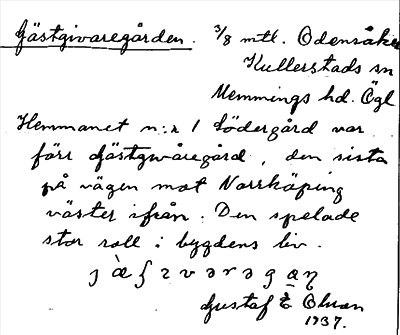 Gästgivaregården. 3/8 mtl. Odensåker
Kullerstads sn
Memmings hd. Ögl
Hemmanet n:r 1 Södergård var
förr Gästgivaregård, den sista
på vägen mot Norrköping
väster ifrån. Den spelade
stor roll i bygdens liv.
Gustaf E Ohrn
1937.